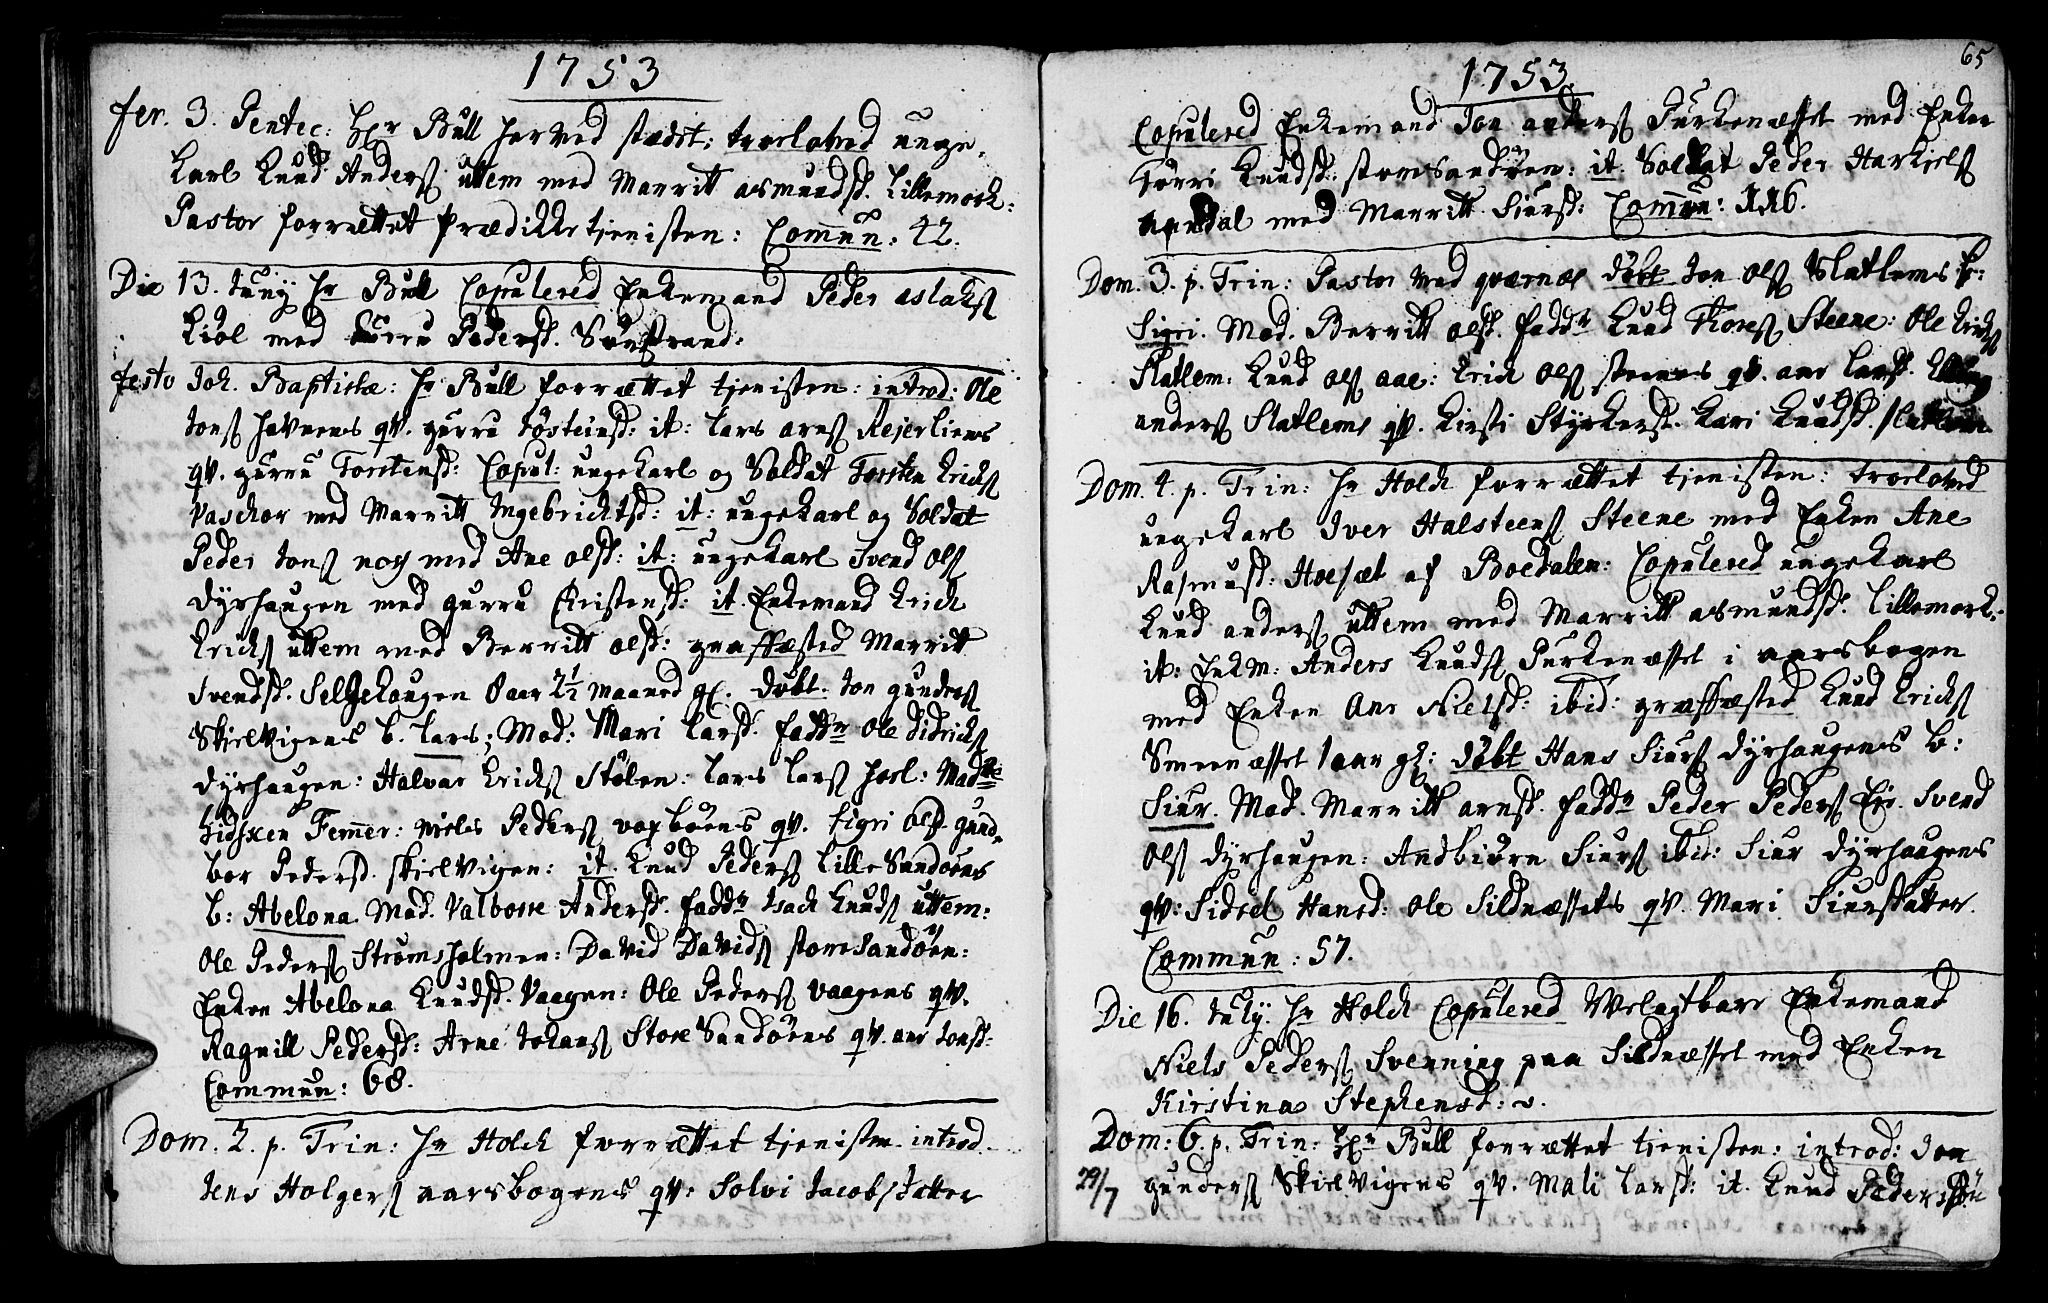 1753
fer. 3. Pentec: Hr Bull herved stædet; troeloved unge,
karl Knud Anders uttem med Marritt asmundsd. Lillemork:
Pastor forrættet Prædikketjenisten: Comun: 42.
Die 13. Juny Hr Bull Copulered Enkemand Peder aslaks
Kiøl med Pedersd. Strand:
festo Joh. Baptistæ: Hr Bull forrættet tjenisten: introd: Ole
Jons havnens qv. gurru Tosteinsd: it: Lars arns Rejerliens
qv. gurru Torstensd: Copul: ungekarl og Soldat Torsten Ericks
Vaschor med Marritt Ingebrichtsd: it: ungekarl og Soldat
Peder Jons nog med Ane olsd: it: ungekarl Svend Ols
dyrhaugen med gurru Christensd: it. Enkemand Erich
Ericks uttem med Berritt olsd: graffæsted Marritt
Svendsd. Selgehaugen 8 aar 2½ maaned gl. døbt. Jon gunders
Skielvigens b. Lars; Mod: Mari Larsd. fadd Ole Didricks
dyrhaugen: Halvar Ericks Stølen: Lars Lars Hoel: Madlle
Femer: Niels Peders vogbøens qv. Sigri Olsd. gund,
bor Pedersd. Skielvigen: it. Knud Peders Lille Sandøens
b: Abelona. Mod. Valborre Andersd. fadd Isach Knuds uttem:
Ole Peders Strømsholmen: David Davids storesandøen:
Enken Abelona Knudsd. Vaagen: Ole Peders vaagens qv.
Ragnill Pedersd: Arne Johans Store Sandøens qv. ane Jonsd:
Commun: 68.
Dom. 2. p. Trin: Hr Holch forrættet tjenisten introd.
Jens Holgers aarsbogens qv: Solvi Jacobs datter
65
1753
Copulered Enkemand Jon anders Purkenæsset med Enken
Gurri Knudsd: storesandøen: it. Soldat Peder Harkiels
med Marritt Siursd: Comun: 116.
Dom. 3. p. Trin: Pastor ved qværnes døbt Jon Ols Slatlems b:
Sigri. Mod. Berritt Olsd. fadd Knud Thores Steene: Ole Ericks
Slatlem: Knud ols aae: Erich Ols steenes qv. ane Larsd.
anders Slatlems qv. Kirsti Styrkersd. Kari Knudsd. Slatlem
Dom. 4. p. Trin: Hr Holch forrættet tjenisten: troeloved
ungekarl Iver Halsteens Steene med Enken Ane
Rasmusd: Hoesæt af Boedalen: Copulered ungekarl
Knud anders uttem med Marritt asmundsd. Lillemork:
it: Enkm: Anders Knuds Purkenæsset i aarsbogen
med Enken Ane Nielsd: ibid: græffæsted Knud Ericks
Smeenæsset 1 aar gl: døbt Hans Siurs dyrhaugens b:
Siur. Mod. Marritt arnsd. fadd Peder Peders Eje. Svend
Ols dyrhaugen: Andbiørn Siurs ibid: Siur dyrhaugens
qv: Sidsel Hansd: Ole Sildnæssets qv. Mari Siursdatter.
Commun: 57.
Die 16. July. Hr Holch Copulered Velagtbare Enkemand
Niels Peders Svenning paa Sildnæsset med Enken
Kirstina Stephensd:
Dom: 6. p. Trin: Hr Bull forrættet tjenisten: introd: Jon
29/7 gunders Skielvigens qv. Mali Larsd: it. Knud Peders